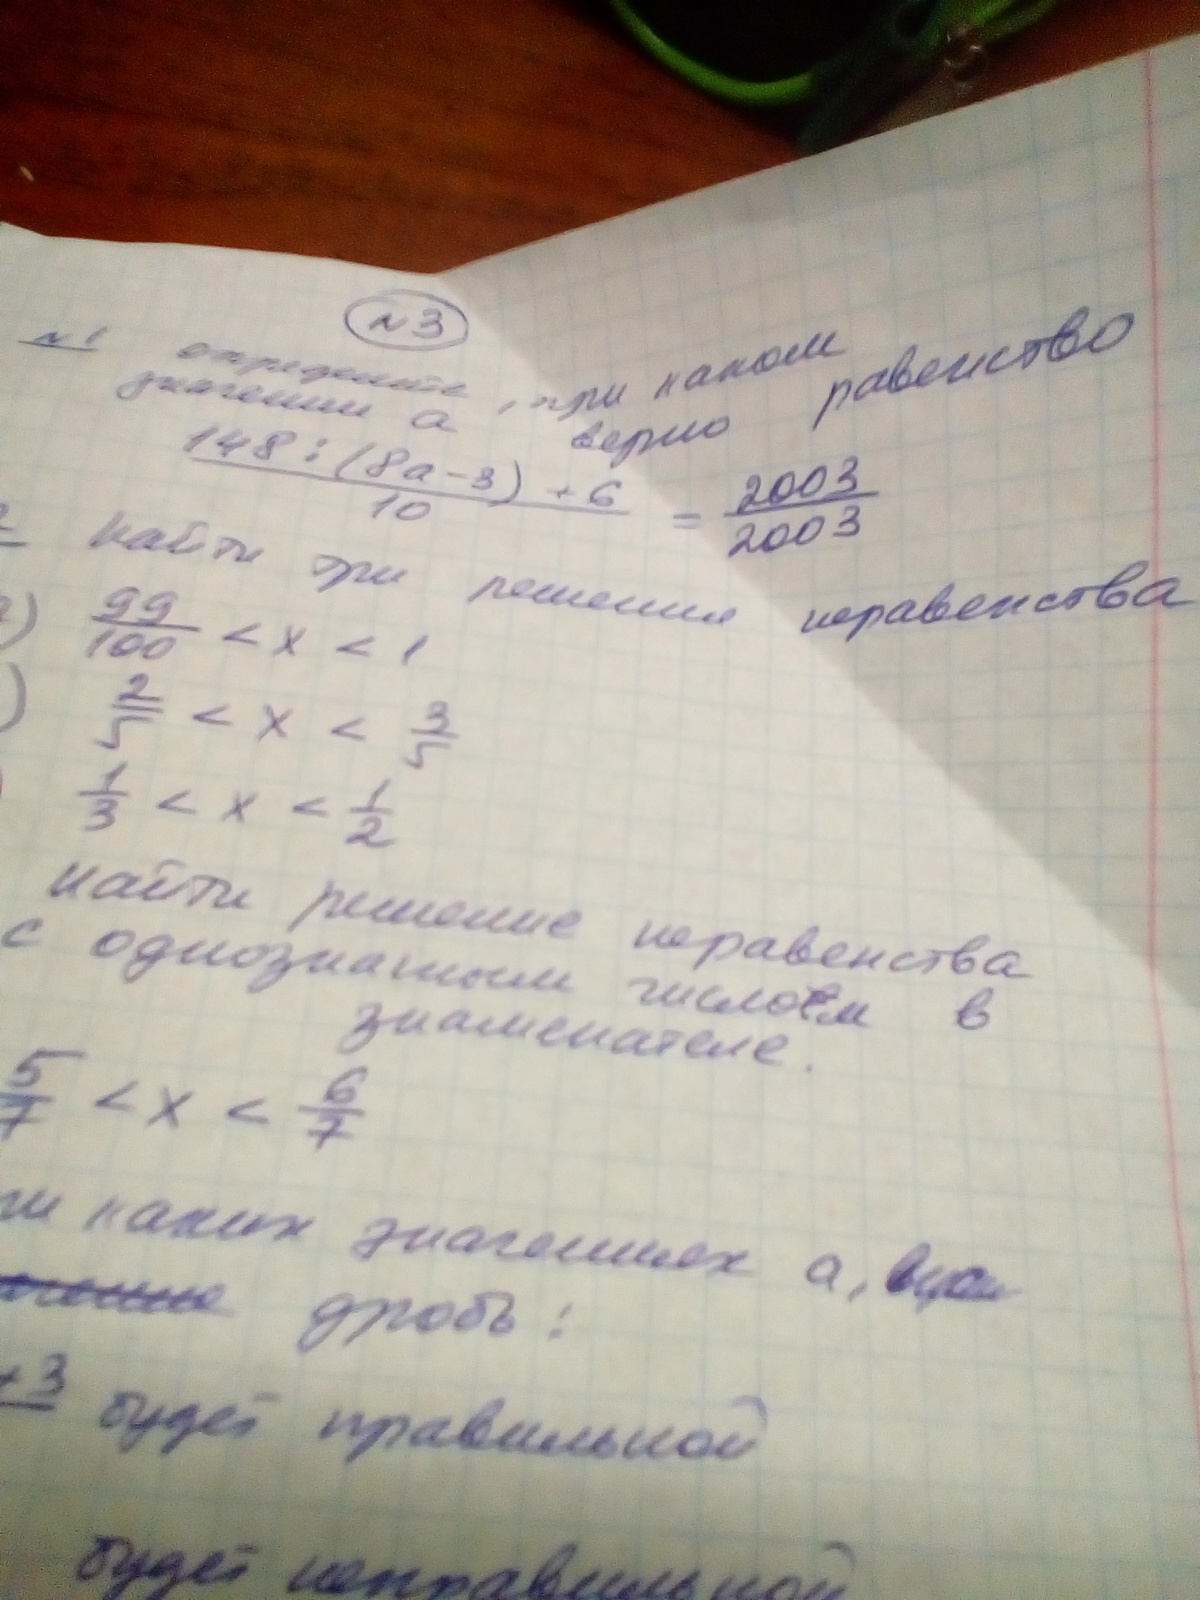 №3
№1 определите, при каком
значении a верно равенство
148 : (8a - 3) + 6 / 10 = 2003 / 2003
найти три решения неравенства
) 99/100 < x < 1
) 2/5 < x < 3/5
1/3 < x < 1/2
найти решение неравенства
с однозначным числоем в
знаменателе.
5/7 < x < 6/7
ри каких значениях a,
дробь:
+3 будет правильной
будет неправильной